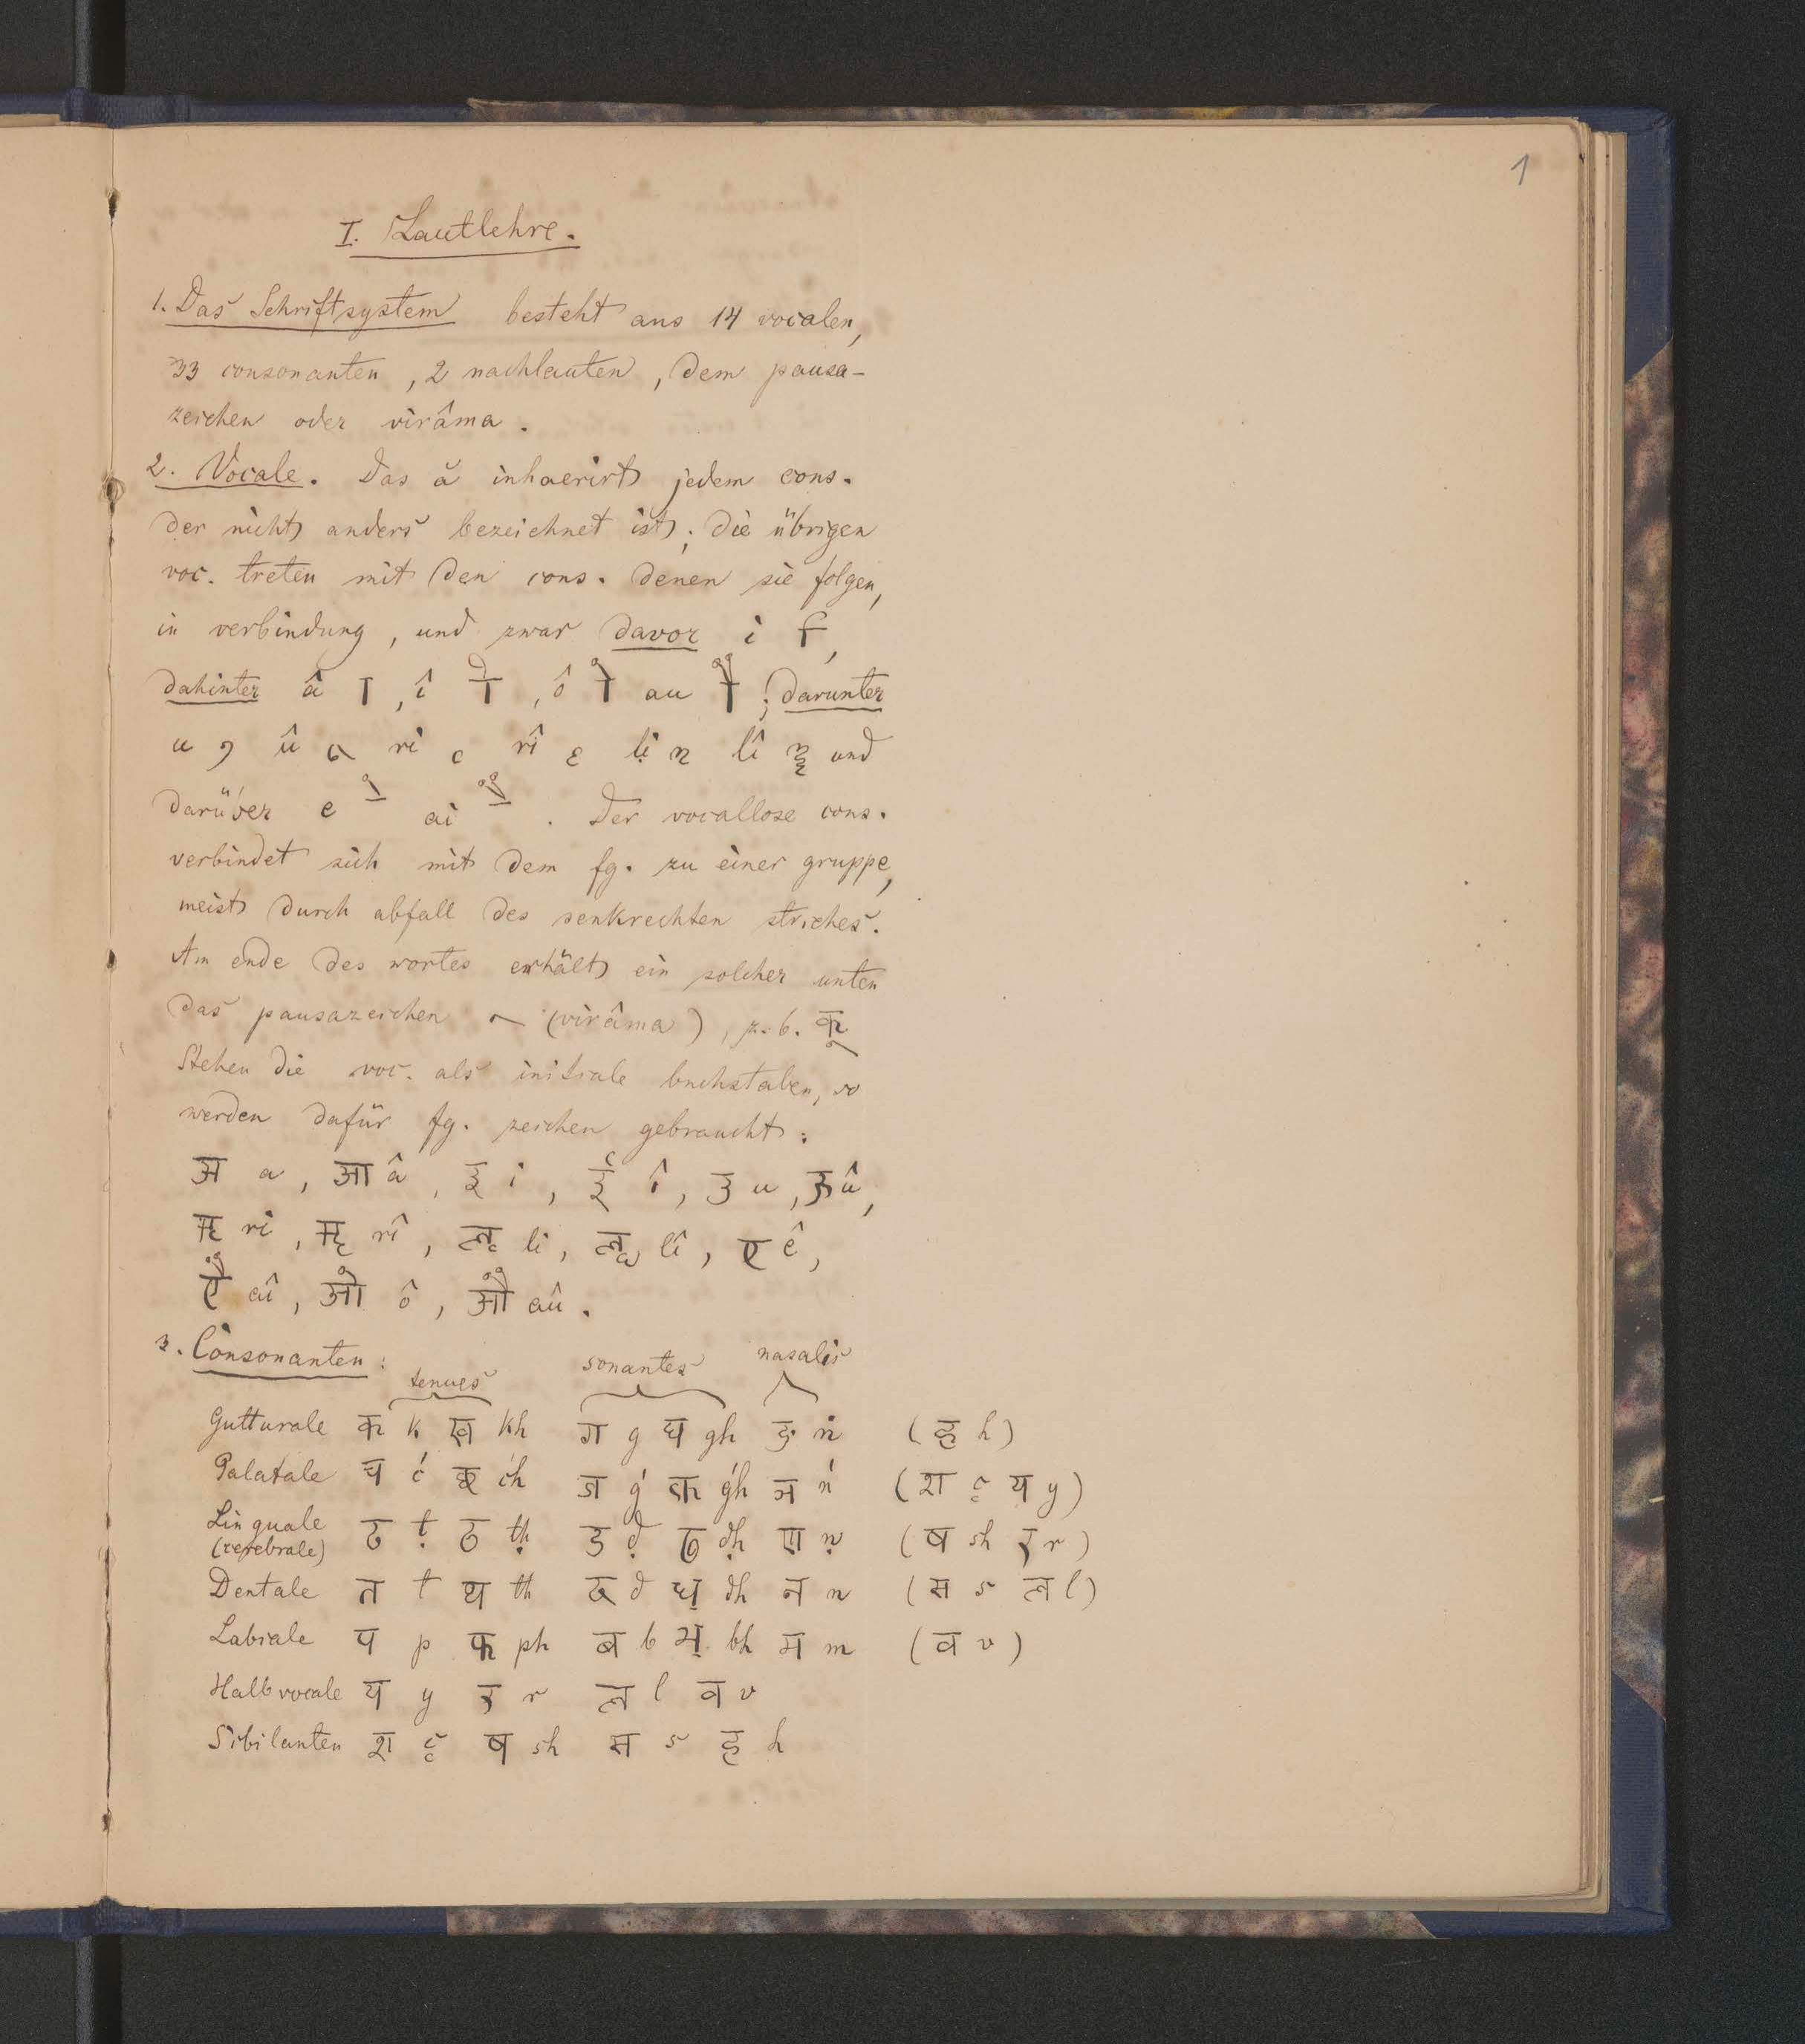 1
I. Lautlehre.
1. Das Schriftsystem besteht aus 14 vocalen,
33 consonanten, 2 nachlauten, dem pausa-
zeichen oder virâma.
2. Vocale. Das ă inhaerirt jedem cons.
der nicht anders bezeichnet ist; die übrigen
voc. treten mit den cons. denen sie folgen,
in verbindung, und zwar davor i ि,
dahinter â ा, î ी, ô ो au ौ; darunter
u ु û ू ri ृ rî ॄ li ॢ lî ॣ und
darüber e े ai ै. Der vocallose cons.
verbindet sich mit dem fg. zu einer gruppe,
meist durch abfall des senkrechten striches.
Am ende des wortes erhält ein solcher unten
das pausazeichen ् (virâma), z. b. क्
Stehen die voc. als initiale buchstaben, so
werden dafür fg. zeichen gebraucht:
अ a, आ â, इ i, ई î, उ u, ऊ û,
ऋ ri, ॠ rî, ऌ li, ॡ lî, ए ê,
ऐ aî, ओ ô, औ aû.
3. Consonanten:
tenues sonantes nasalis
Gutturale क k ख kh ग g घ gh ङ ṅ (ह h)
Palatale च ć छ ćh ज ǵ झ ǵh ञ ń (श ç य y)
Linguale ट ṭ ठ ṭh ड ḍ ढ ḍh ण ṇ (ष sh र r)
(cerebrale)
Dentale त t थ th द d ध dh न n (स s ल l)
Labiale प p फ ph ब b भ bh म m (व v)
Halbvocale य y र r ल l व v
Sibilanten श ç ष sh स s ह h